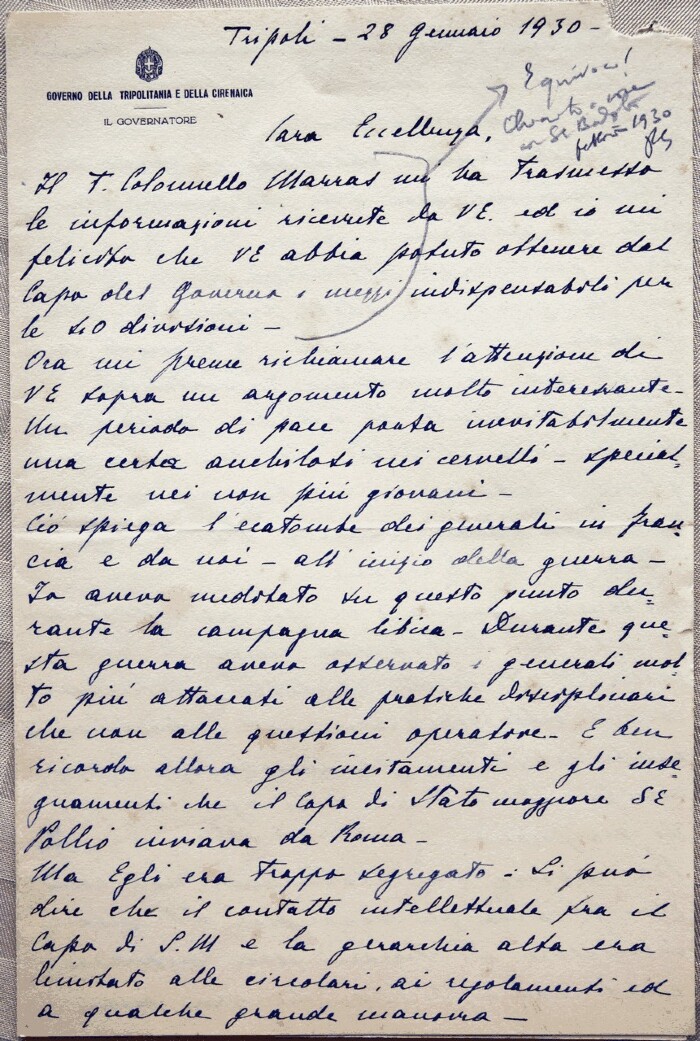 Tripoli – 28 Gennaio 1930 –
GOVERNO DELLA TRIPOLITANIA E DELLA CIRENAICA
IL GOVERNATORE
Equivoco!
Chiarito a voce
con SE Badoglio
febbraio 1930
Cara Eccellenza,
Il T. Colonnello Marras mi ha trasmesso
le informazioni ricevute da VE. ed io mi
felicito che VE abbia potuto ottenere dal
Capo del Governo i mezzi indispensabili per
le 40 divisioni –
Ora mi preme richiamare l'attenzione di
VE sopra un argomento molto interessante –
Un periodo di pace porta inevitabilmente
una certa anchilosi nei cervelli – special-
mente nei non più giovani –
Ciò spiega l'ecatombe dei generali in Fran-
cia e da noi – all'inizio della guerra –
Io avevo meditato su questo punto du-
rante la campagna libica – Durante que-
sta guerra avevo osservato i generali mol-
to più attaccati alle pratiche disciplinari
che non alle questioni operatore – E ben
ricordo allora gli incitamenti e gli inse-
gnamenti che il Capo di Stato maggiore SE
Pollio inviava da Roma –
Ma Egli era troppo segregato – Si può
dire che il contatto intellettuale fra il
Capo di S.M e la gerarchia alta era
limitato alle circolari, ai regolamenti ed
a qualche grande manovra –